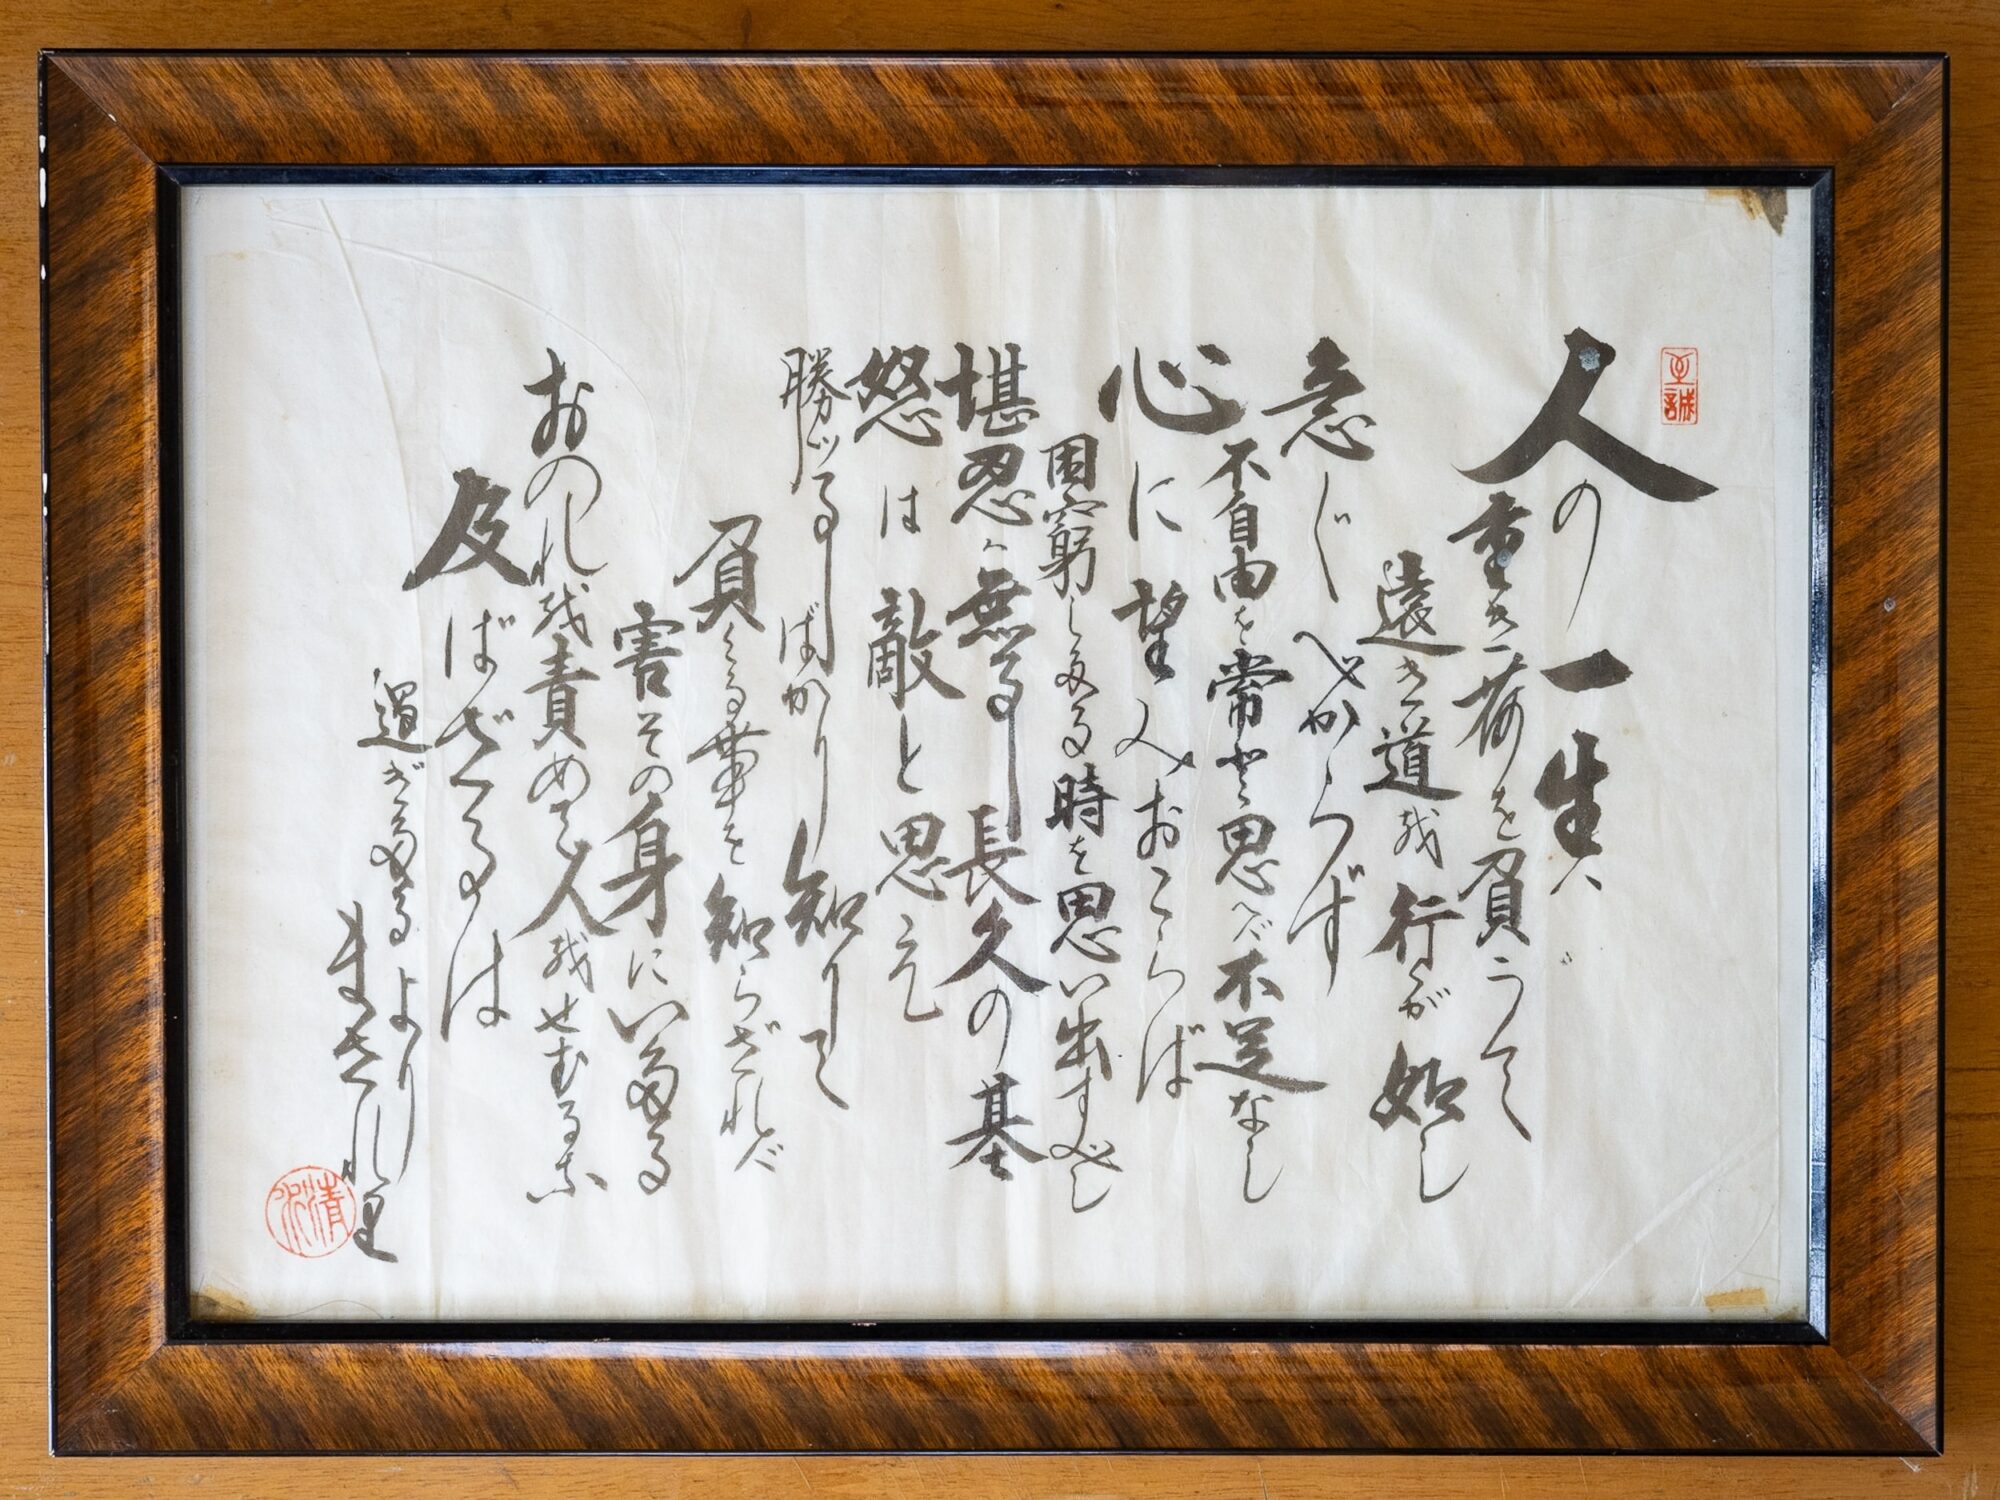 至誠
人の一生ハ
重き荷を負うて
遠き道を行くが如し
急ぐべからず
不自由を常と思へば不足なし
心に望みおこらば
困窮したる時を思い出すべし
堪忍ハ無事長久の基
怒は敵と思え
勝ツ事ばかり知りて
負くる事を知らざれば
害その身にいたる
おのれを責めて人をせむるな
及ばざるは
過ぎたるより
まされり